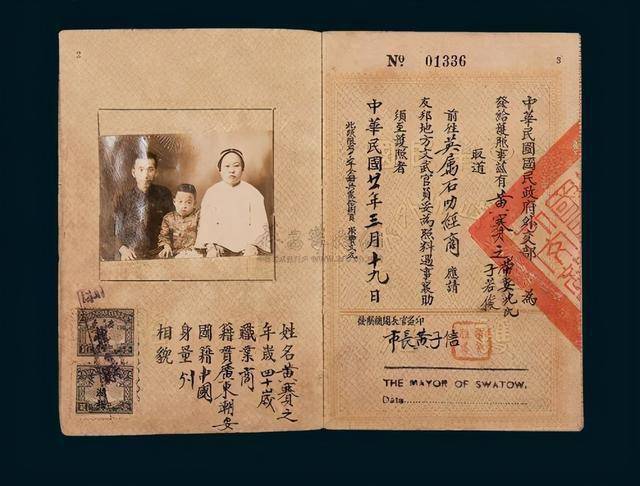 2
姓名黄賽之
年歲四十歲
職業商
籍貫廣東潮安
國籍中國
身量
相貌
No 01336
3
中華民國國民政府外交部 為
發給護照事茲有黄賽之
取道
前往英属石叻經商 應請
友邦地方文武官員妥為照料遇事襄助
須至護照者
中華民國廿一年三月十九日
發照機關長官簽印
市長黄子信
THE MAYOR OF SWATOW.
Date